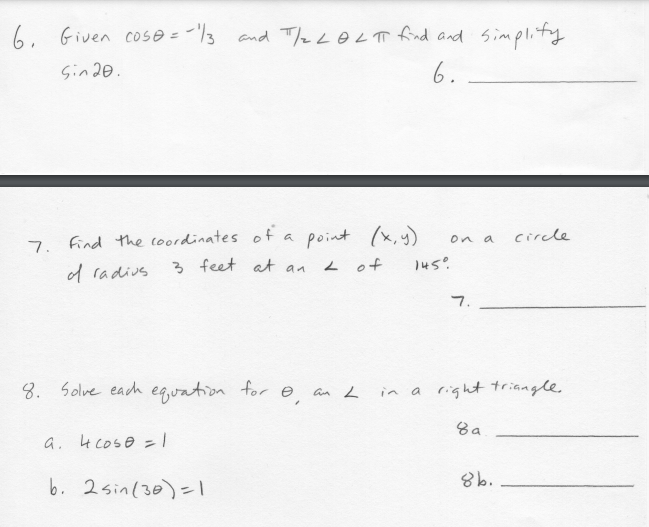 6. Given cosθ = -1/3 and π/2 < θ < π find and simplify
sin2θ.
6. 
7. Find the coordinates of a point (x,y) on a circle
of radius 3 feet at an ∠ of 145°.
7.
8. Solve each equation for θ, an ∠ in a right triangle.
8a
a. 4cosθ = 1
b. 2sin(3θ) = 1
8b.